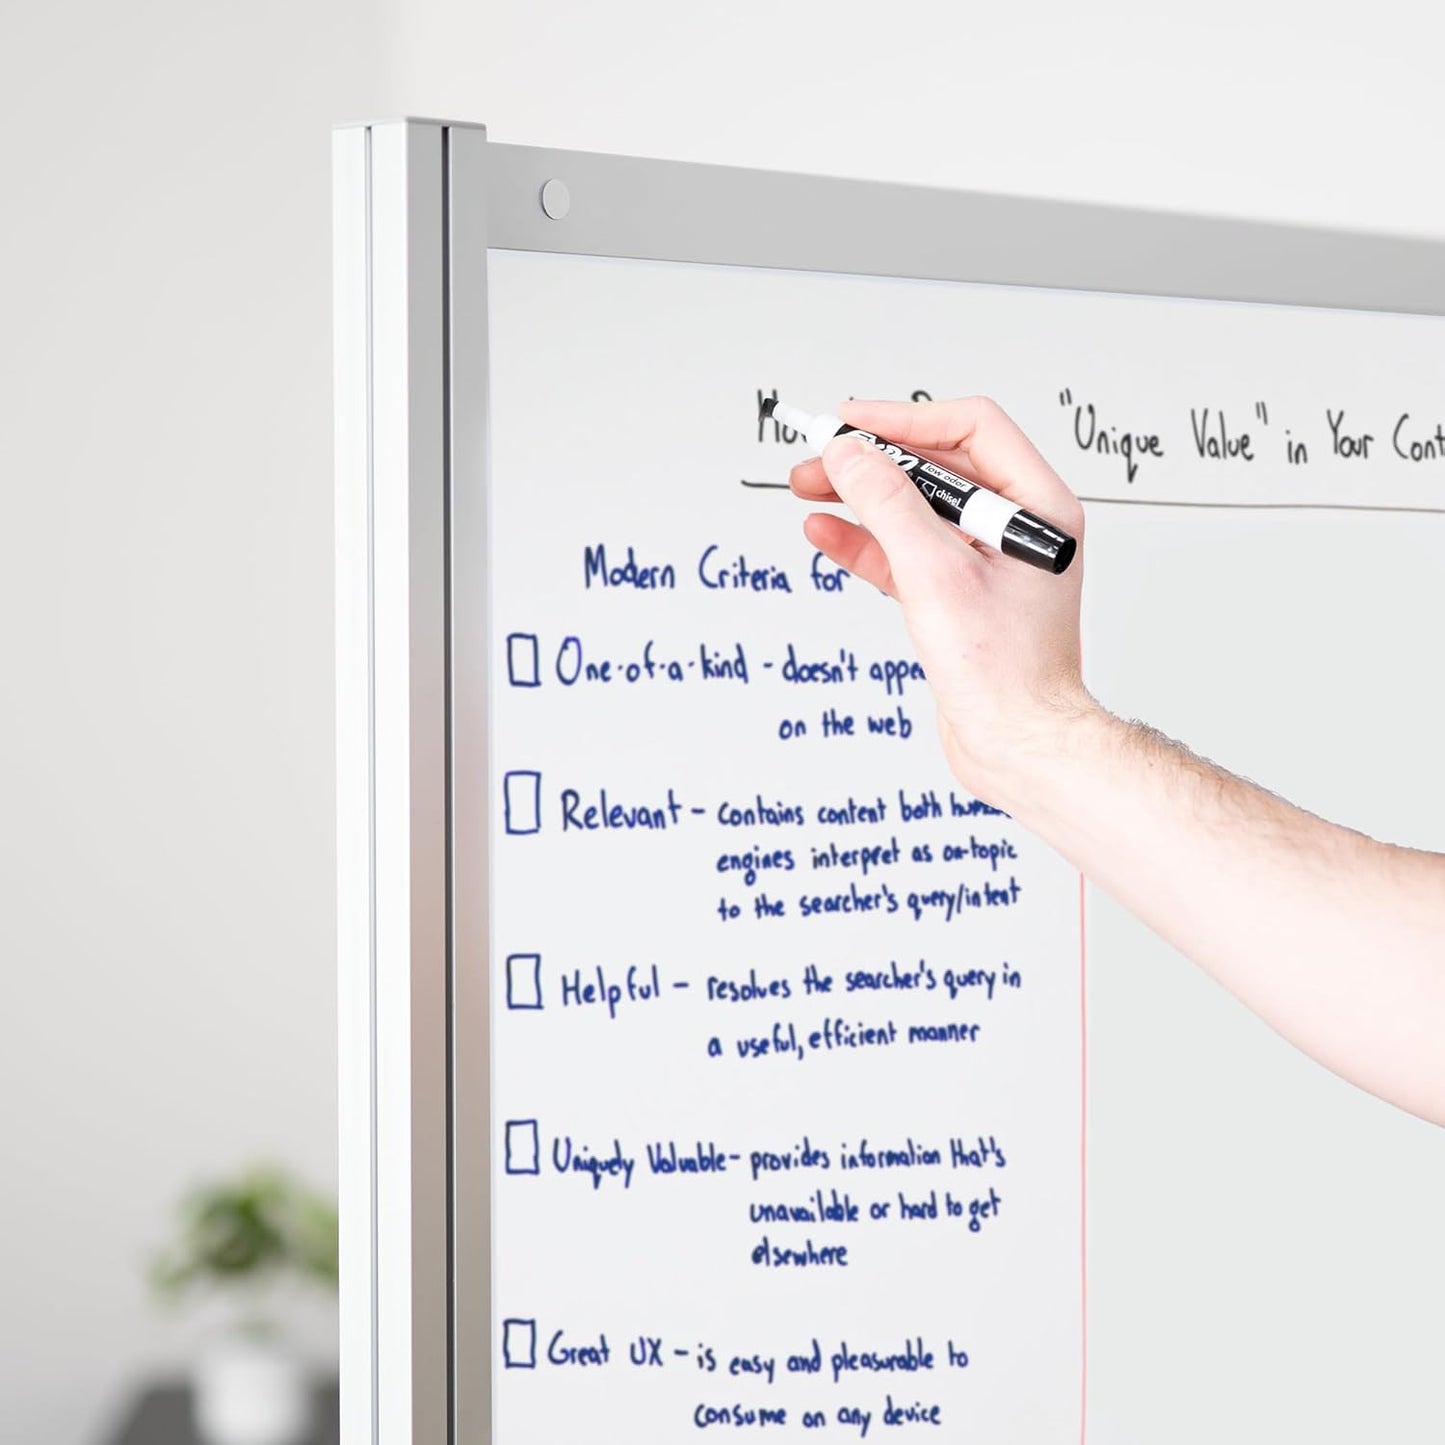 "Unique Value" in Your
Modern Criteria for
One-of-a-kind - doesn't
on the web
Relevant - contains content both
engines interpret as on-topic
to the searcher's query/intent
Helpful - resolves the searcher's query in
a useful, efficient manner
Uniquely Valuable - provides information that's
unavailable or hard to get
elsewhere
Great UX - is easy and pleasurable to
consume on any device
low odor
chisel